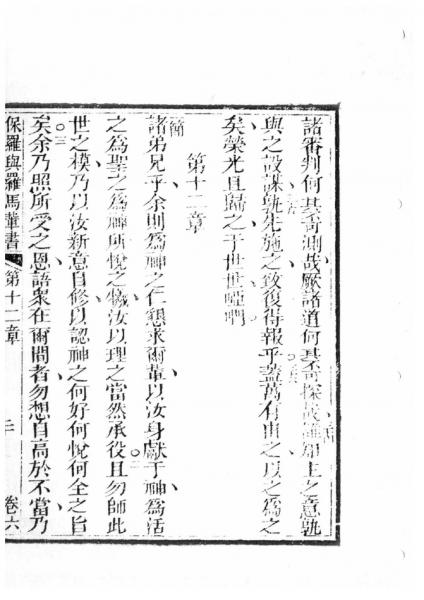 諸審判何其奇測哉厥諸道何其奇探哉誰知主之意孰
與之設謀孰先施之致復得報乎蓋萬有由之以之為之
矣榮光且歸之于世世啞𠵽
第十二章
諸弟兄乎余則為神之仁懇求爾輩以汝身獻于神為活
之為聖之為神所悅之犧汝以理之當然承役且勿師此
世之模乃以汝新意自修以認神之何好何悅何全之旨
矣余乃照所受之恩語眾在爾間者勿想自高於不當乃
保羅與羅馬輩書 第十二章 卷六